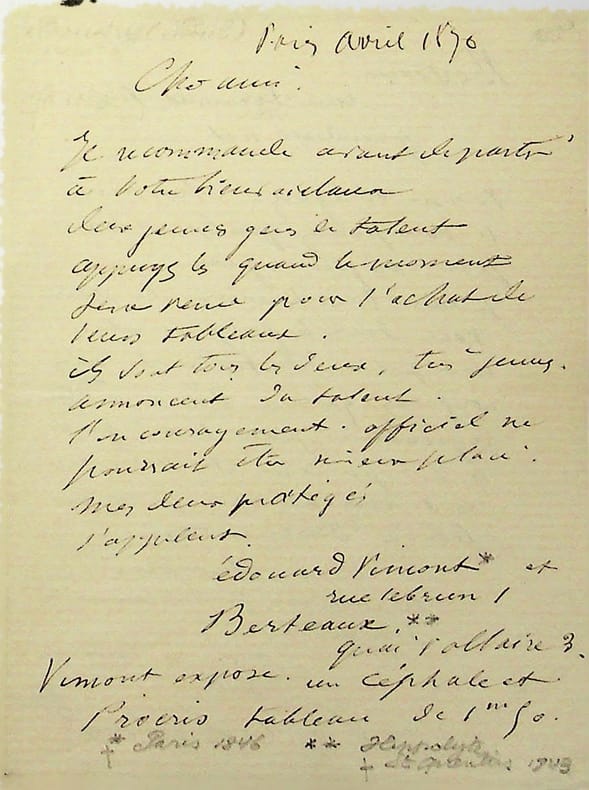 Paris avril 1870
Cher ami.
Je recommande avant de partir
à votre bienveillance
deux jeunes gens de talent
appuyez les quand le moment
sera venu pour l'achat de
leurs tableaux.
ils sont tous les deux, très jeunes.
annoncent du talent.
l'encouragement. officiel ne
pourrait être mieux placé.
mes deux protégés
s'appelent.
édouard Vimont * et
rue lebrun 1
Berteaux. **
quai voltaire 3.
Vimont expose. un céphale et
Procris tableau de 1m 50.
* Paris 1846 ** Hippolyte
† St Quentin 1843